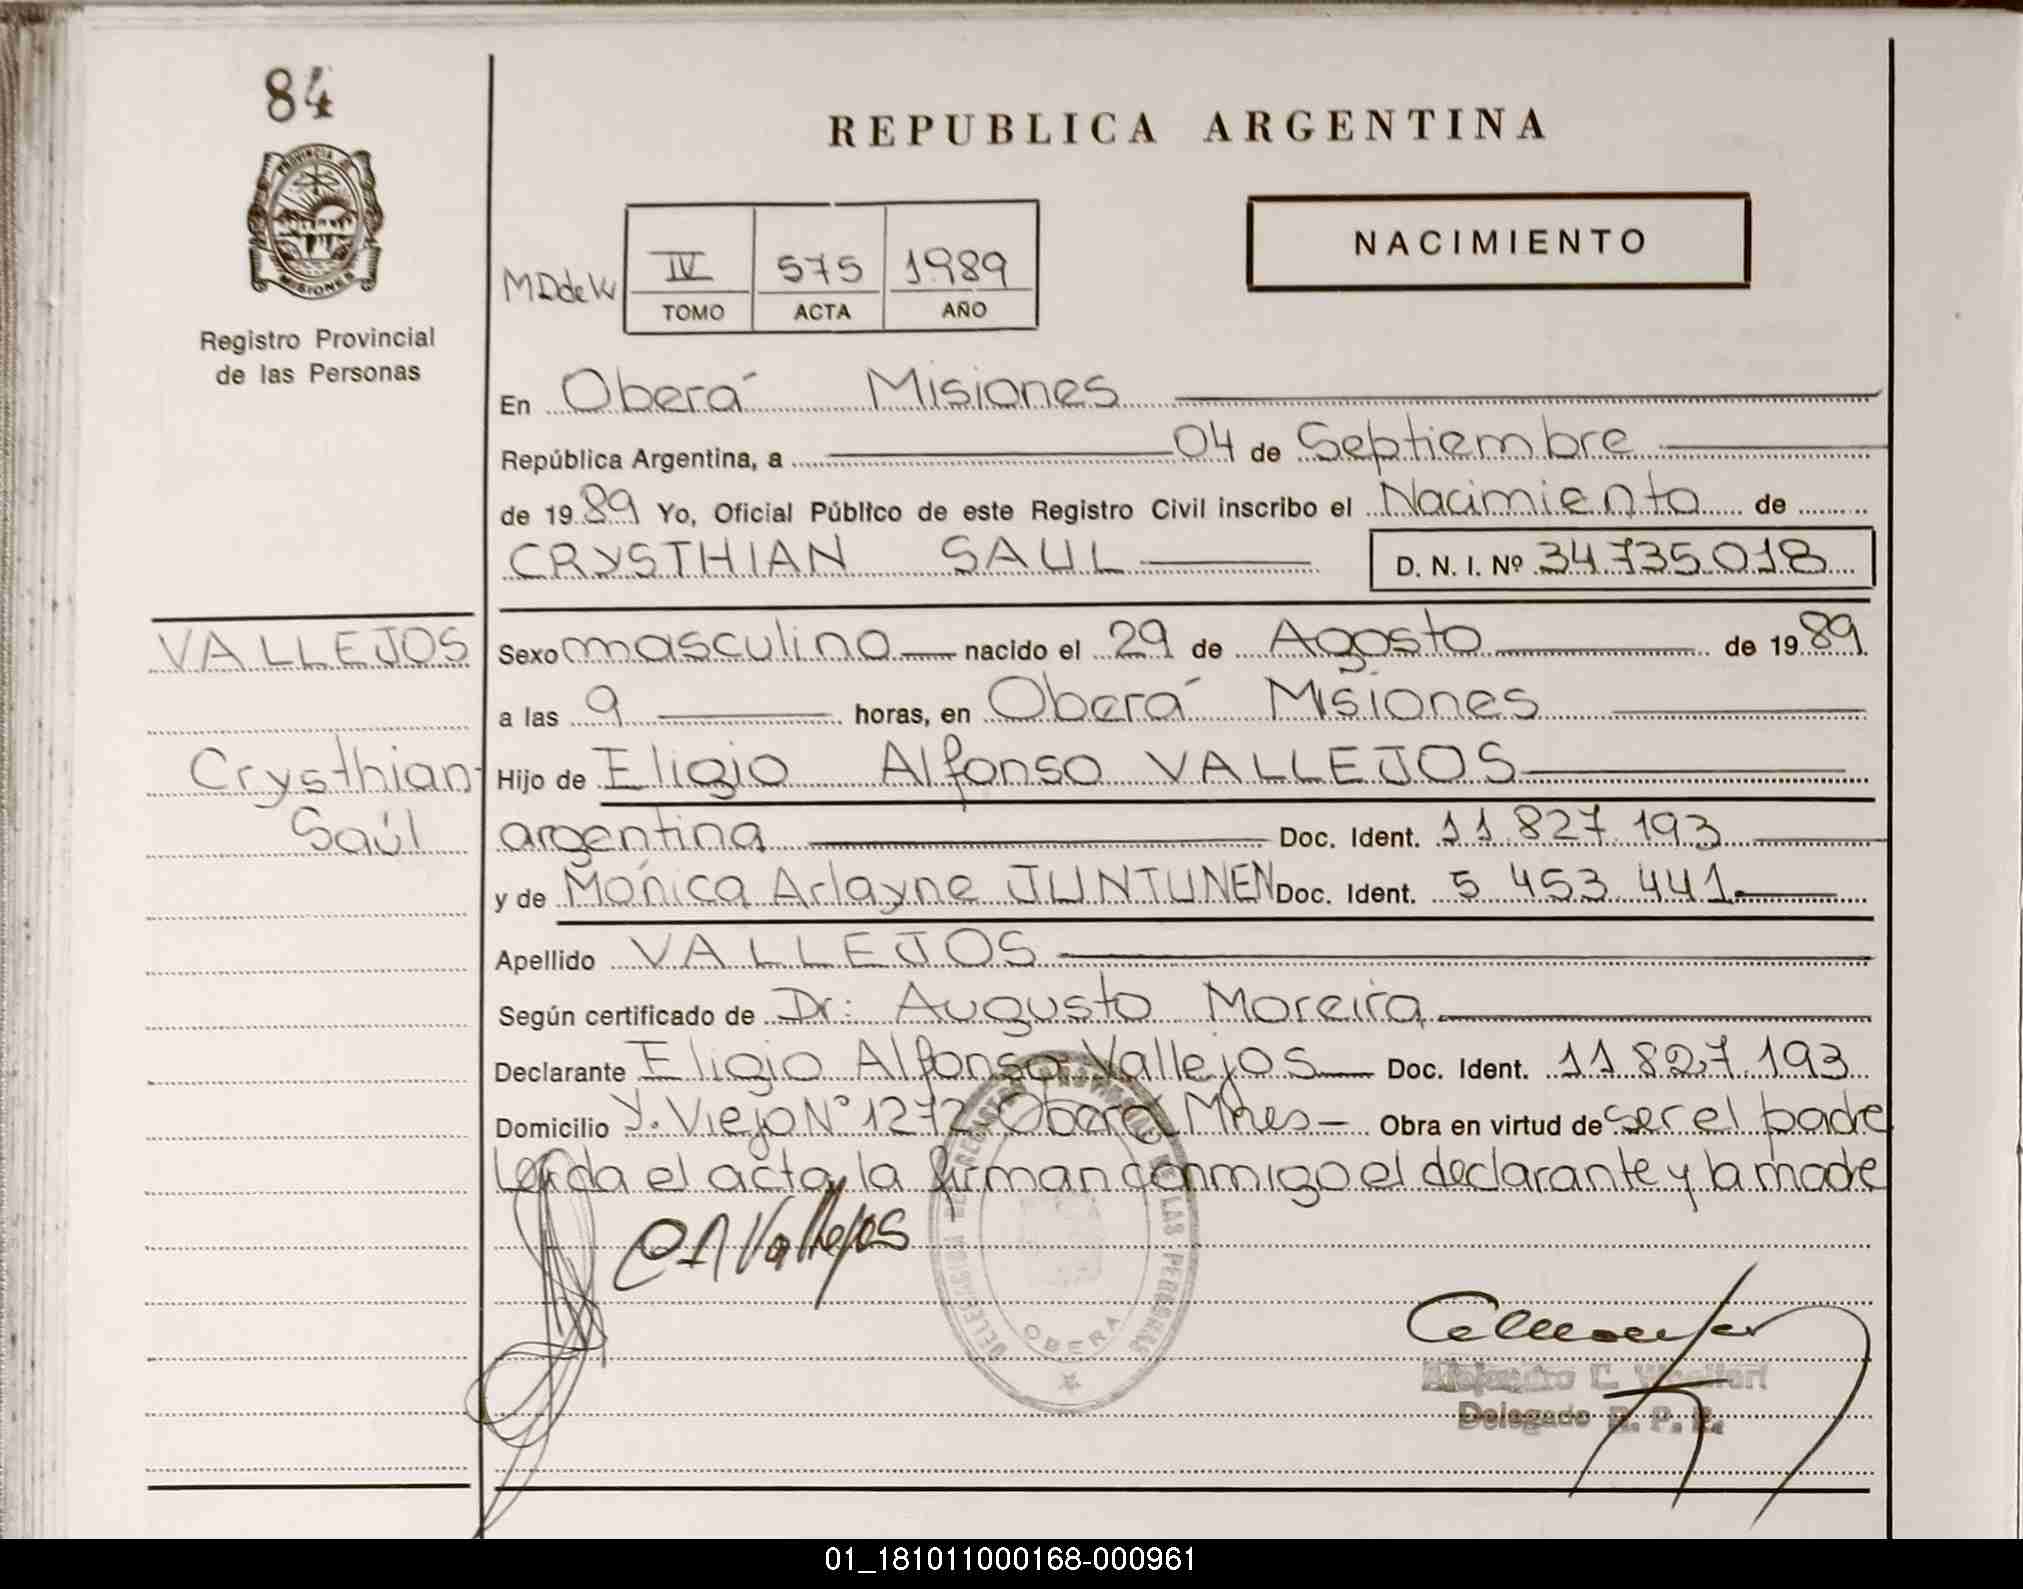 84
PROVINCIA DE
MISIONES
Registro Provincial
de las Personas
REPUBLICA ARGENTINA
NACIMIENTO
MDdeW
IV 575 1989
TOMO ACTA AÑO
En Oberá Misiones
República Argentina, a 04 de Septiembre
de 1989 Yo, Oficial Público de este Registro Civil inscribo el Nacimiento de
CRYSTHIAN SAUL D. N. I. Nº 34.735.018
VALLEJOS
Crysthian
Saúl
Sexo masculino nacido el 29 de Agosto de 1989
a las 9 horas, en Oberá Misiones
Hijo de Eligio Alfonso VALLEJOS
argentina Doc. Ident. 11.827.193
y de Mónica Arlayne JUNTUNEN Doc. Ident. 5.453.441
Apellido VALLEJOS
Según certificado de Dr: Augusto Moreira
Declarante Eligio Alfonso Vallejos Doc. Ident. 11.827.193
Domicilio Y. Viejo N° 1272 Oberá Mnes Obra en virtud de ser el padre
Leída el acta, la firman conmigo el declarante y la madre
Vallejos
DE LAS PERSONAS
OBERA
Alejandro C.
Delegado R. P. P.
01_181011000168-000961